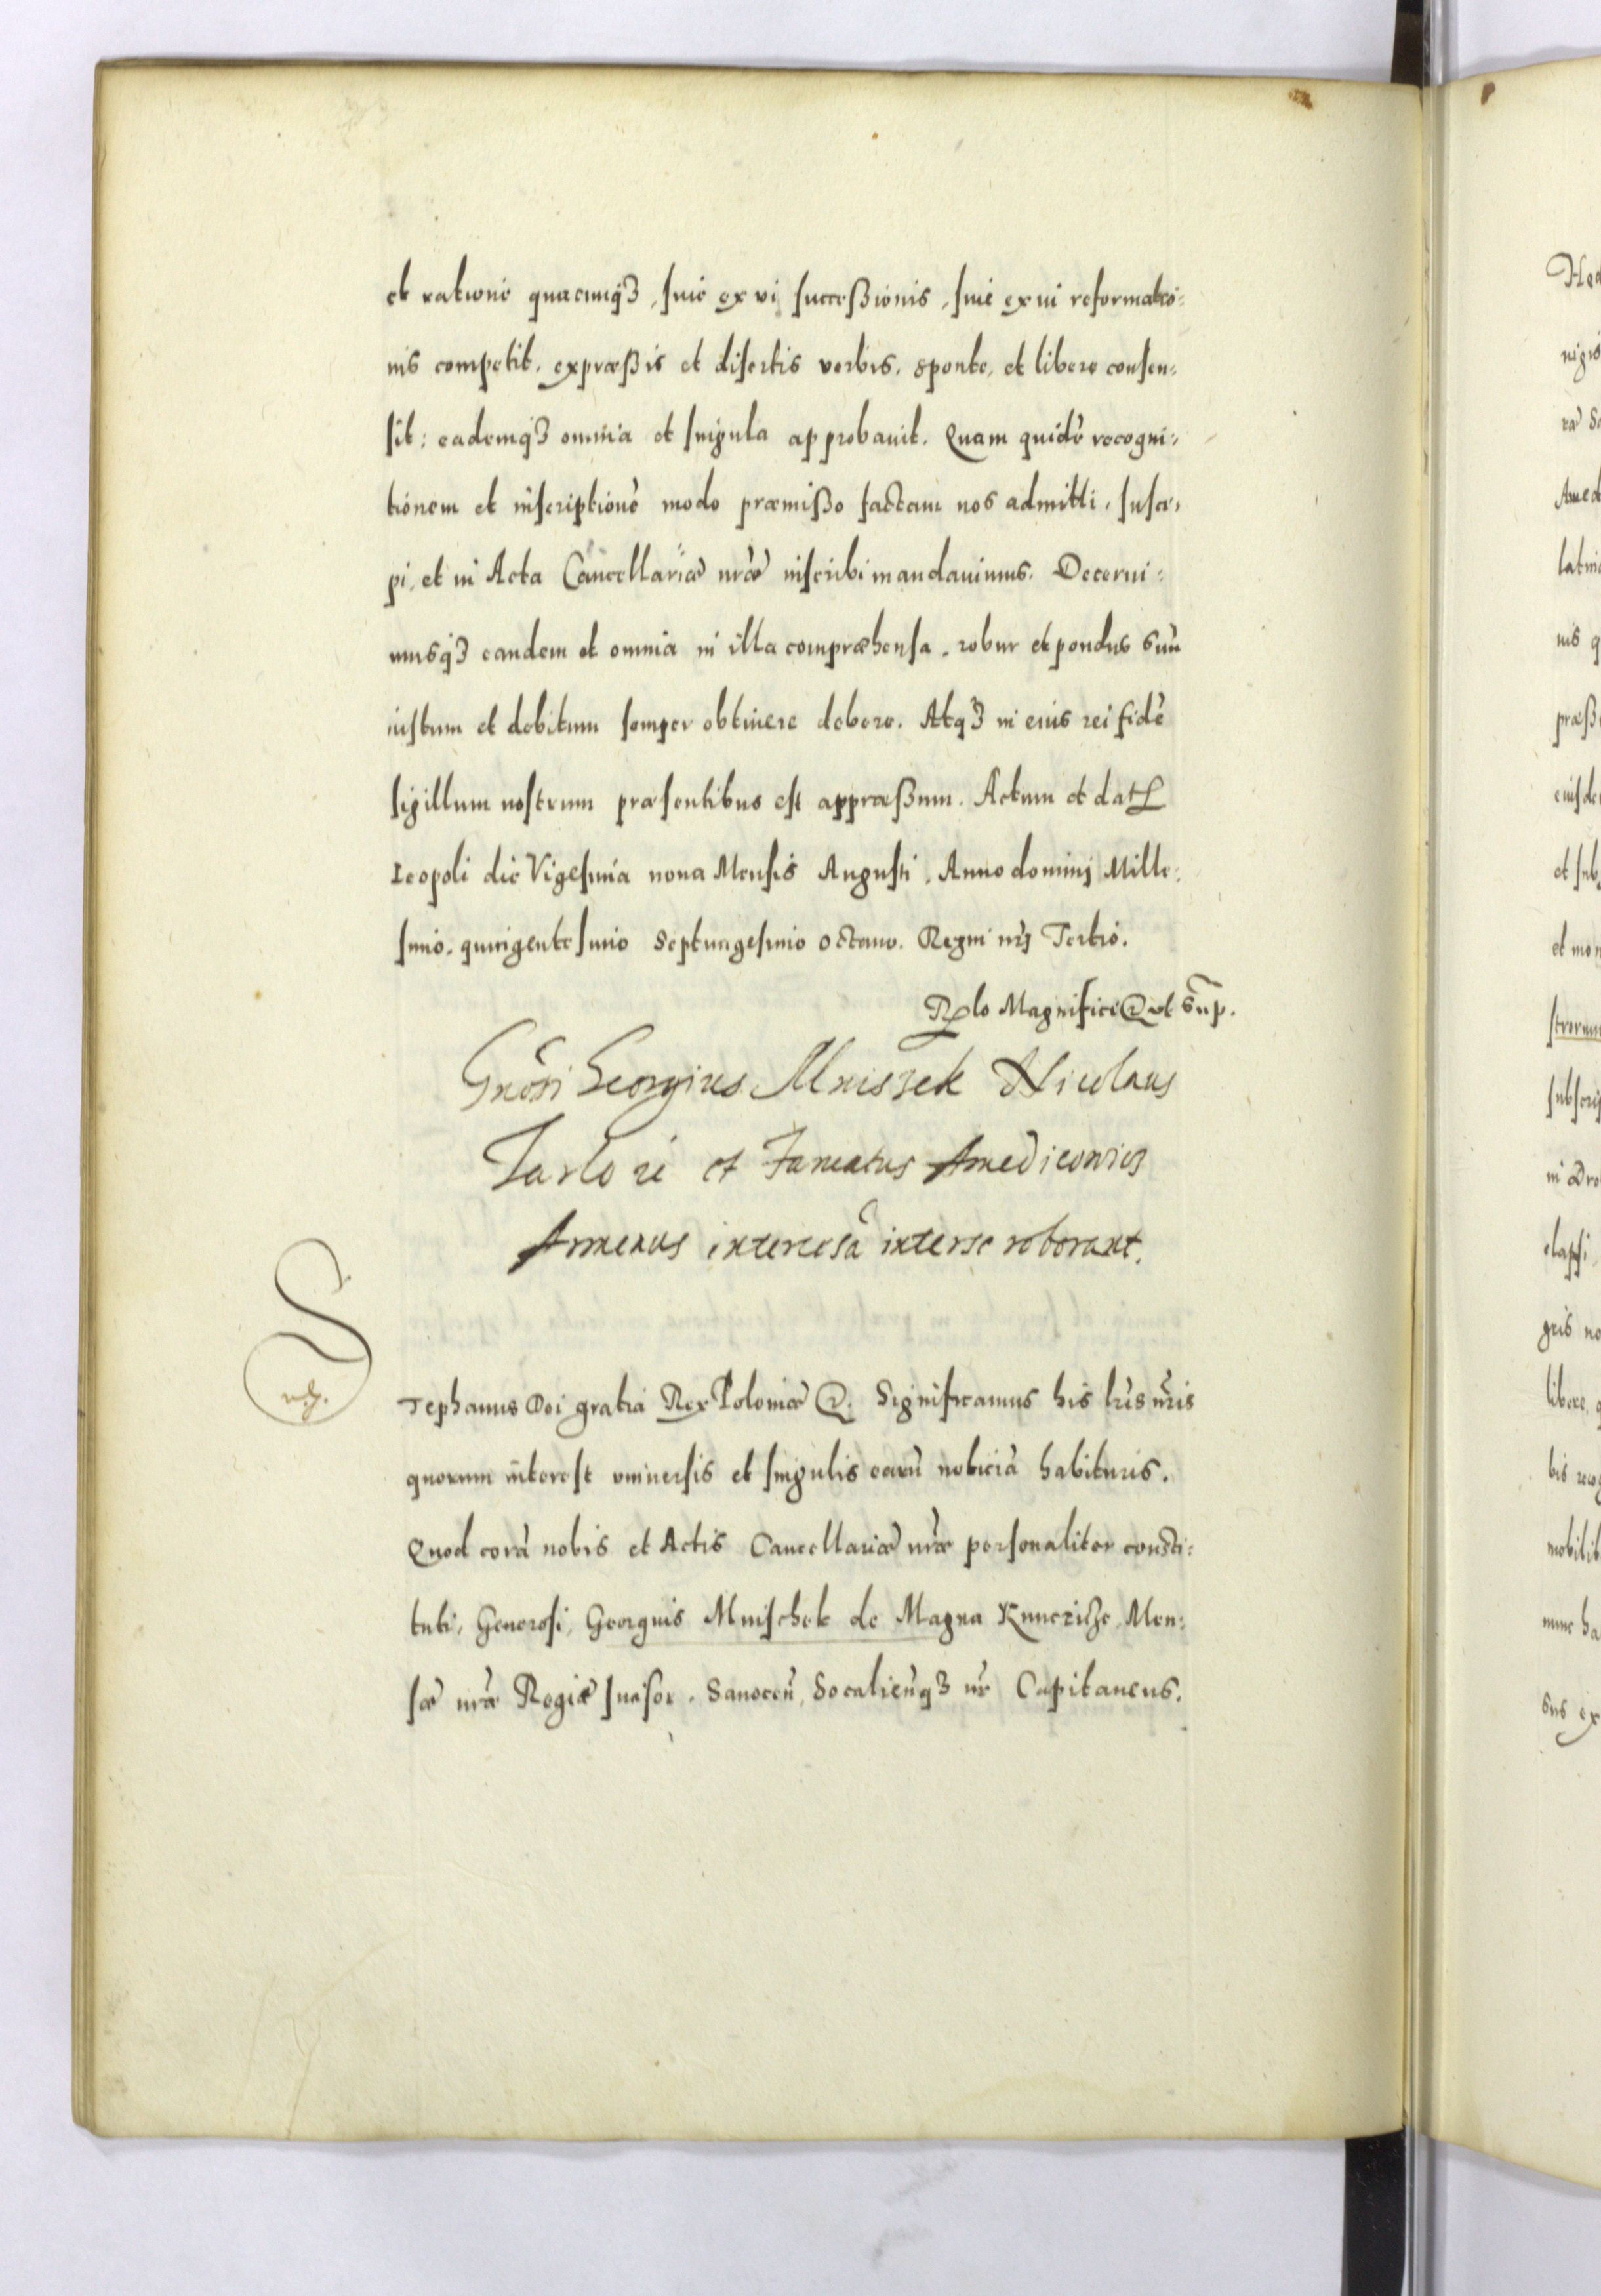 et ratione quacunqꝫ, siue ex vi successionis, siue ex ui reformatio=
nis competit, expræssis et disertis verbis, sponte, et libere consen=
sit: eademqꝫ omnia et singula approbauit. Quam quidē recogni=
tionem et inscriptionē modo præmisso factam nos admitti, susci=
pi, et in Acta Cancellariæ nr̃æ inscribi mandauimus. Decerni=
musqꝫ eandem et omnia in illa compræhensa, robur et pondus suū
iustum et debitum semper obtinere debere. Atqꝫ in eius rei fidē
sigillum nostrum præsentibus est appræssum. Actum et datꝭ
Leopoli die Vigesima nona Mensis Augusti, Anno dominj Mille=
simo, quingentesimo Septuagesimo octauo. Regni nrj Tertio.
Rꝑlo Magnifici @ vt sup.
Gnosi Georgius Mniszek Nicolaus
Tarlo zi et Famatus Amediconicz
Armenus intercisā interse roborant.
S
Tephanus Dei gratia Rex Poloniæ @. Significamus his lr̃is nr̃is
quorum interest vniuersis et singulis earū noticiā habituris.
Quod corā nobis et Actis Cancellariæ nr̃æ personaliter consti=
tuti, Generosi, Georguis Mnischek de Magna Kuncziche, Men=
sæ nr̃æ Regiæ Incisor, Sanocen̄, Socalien̄qꝫ nr̃ Capitaneus.